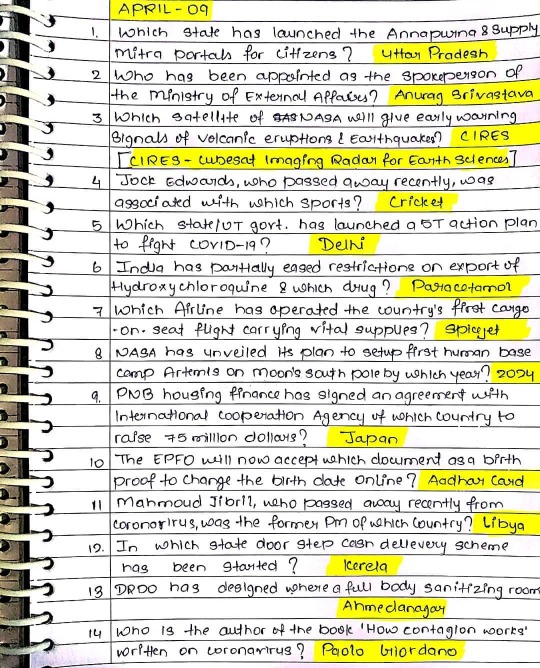 APRIL - 09
1. Which state has launched the Annapurna & Supply
Mitra portals for citizens? Uttar Pradesh
2 Who has been appointed as the spokeperson of
the Ministry of External Affaires? Anurag Srivastava
3 Which satellite of NASA will give early warning
signals of volcanic eruptions & Earthquakes? CIRES
[CIRES - Cubesat Imaging Radar for Earth Sciences]
4 Jock Edwards, who passed away recently, was
associated with which sports? Cricket
5 Which state/UT govt. has launched a 5T action plan
to fight COVID-19? Delhi
6 India has partially eased restrictions on export of
Hydroxychloroquine & which drug? Paracetamol
7 Which Airline has operated the country's first cargo
-on- seat flight carrying vital supplies? Spicejet
8 NASA has unveiled its plan to setup first human base
camp Artemis on moon's south pole by which year? 2024
9. PNB housing finance has signed an agreement with
International Cooperation Agency of which country to
raise 75 million dollars? Japan
10 The EPFO will now accept which document as a birth
proof to change the birth date online? Aadhar Card
11 Mahmoud Jibril, who passed away recently from
coronavirus, was the former PM of which country? Libya
12. In which state door step cash delievery scheme
has been started? Kerela
13 DRDO has designed where a full body sanitizing room
Ahmednagar
14 Who is the author of the book 'How contagion works'
written on coronavirus? Paolo Giordano